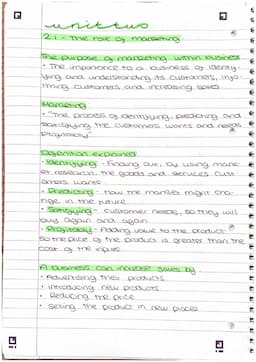 unit two
2.1 - The role of marketing
The purpose of marketing within business
• The importance to a business of identif-
ying and understanding its customers, info
rming customers and increasing sales.
Marketing
• "The process of identifying, predicting and
satisfying the customers wants and needs
profitably"
Definition explained
• Identifying - Finding out, by using mark
et research, the goods and services cust
omers want
• Predicting - How the market might cha-
nge in the future
• Satisfying - Customer needs, so they will
buy again and again
• Profitably - Adding value to the product
so the price of the product is greater than the
cost of the inputs
A business can increase sales by:
• Advertising their products
• Introducing new products
• Reducing the price
• Selling the product in new places